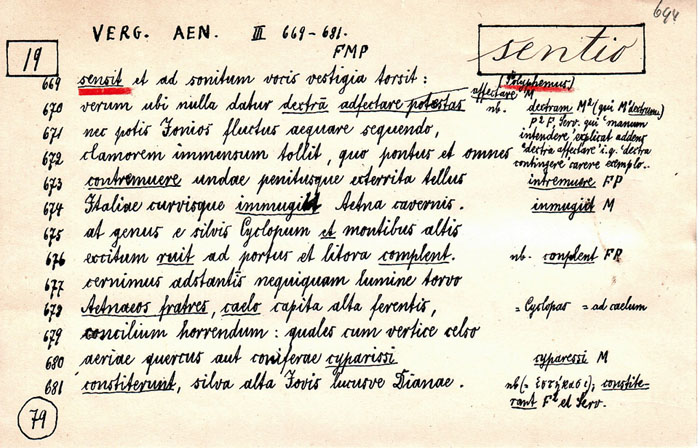 694
VERG. AEN. III 669-681.
FMP
19
sentio
669 sensit et ad sonitum vocis vestigia torsit: (Polyphemus)
670 verum ubi nulla datur dextrā adfectare potestas affectare M nb. dextram M² (qui M¹ dextrum)
671 nec potis Ionios fluctus aequare sequendo, P² F, Serv. qui "manum
672 clamorem immensum tollit, quo pontus et omnes intendere" explicat addens
"dextra affectare" i.q. "dextra
contingere" carere exemplo..
673 contremuere undae penitusque exterrita tellus intremuere FP
674 Italiae curvisque immugiit Aetna cavernis. inmugiit M
675 at genus e silvis Cyclopum et montibus altis
676 excitum ruit ad portus et litora complent. nb. conplent FP
677 cernimus adstantis nequiquam lumine torvo
678 Aetnaeos fratres, caelo capita alta ferentis, = Cyclopas = ad caelum
679 concilium horrendum: quales cum vertice celso
680 aeriae quercus aut coniferae cyparissi cyparessi M
681 constiterunt, silva alta Iovis lucusve Dianae. nb (= ἑστήκασι); constite-
rant F² et Serv.
79